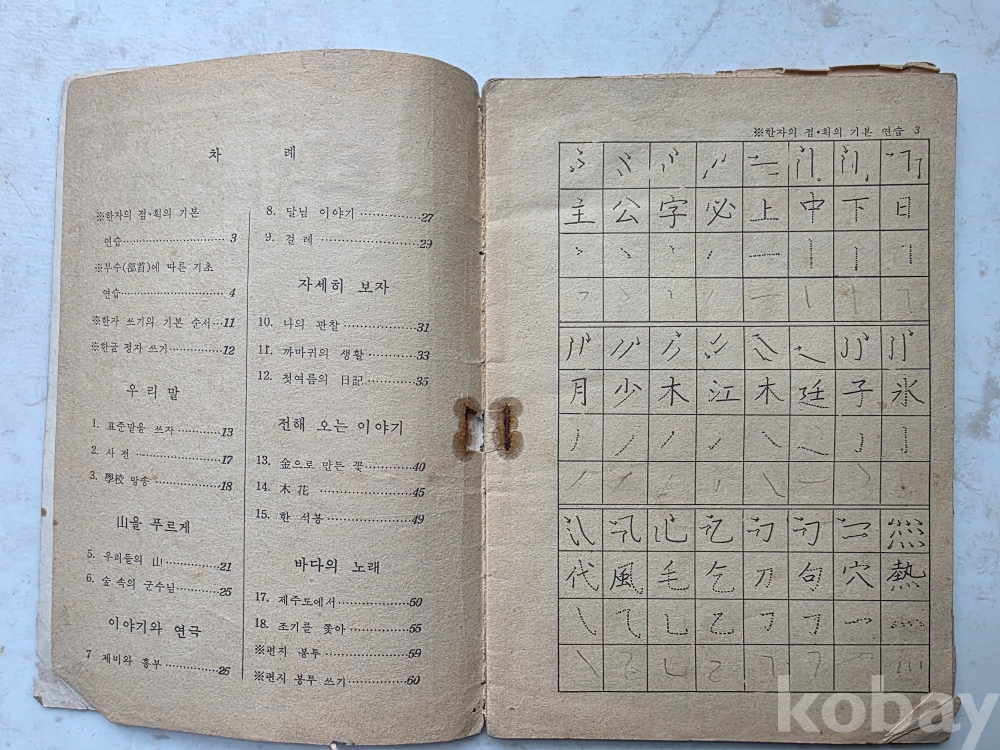 차 례
※한자의 점·획의 기본
연습 3
※부수(部首)에 따른 기초
연습 4
※한자 쓰기의 기본 순서 11
※한글 정자 쓰기 12
우리 말
1. 표준말을 쓰자 13
2. 사 전 17
3. 學校 방송 18
山을 푸르게
5. 우리들의 山 21
6. 숲 속의 군수님 25
이야기와 연극
7 제비와 흥부 26
8. 달님 이야기 27
9. 걸 레 29
자세히 보자
10. 나의 관찰 31
11. 까마귀의 생활 33
12. 첫여름의 日記 35
전해 오는 이야기
13. 金으로 만든 꽃 40
14. 木 花 45
15. 한 석봉 49
바다의 노래
17. 제주도에서 50
18. 조기를 쫓아 55
※편지 봉투 59
※편지 봉투 쓰기 60
※한자의 점·획의 기본 연습 3
主 公 字 必 上 中 下 日
月 少 木 江 木 廷 子 氷
代 風 毛 乞 刀 句 穴 熱
kobay